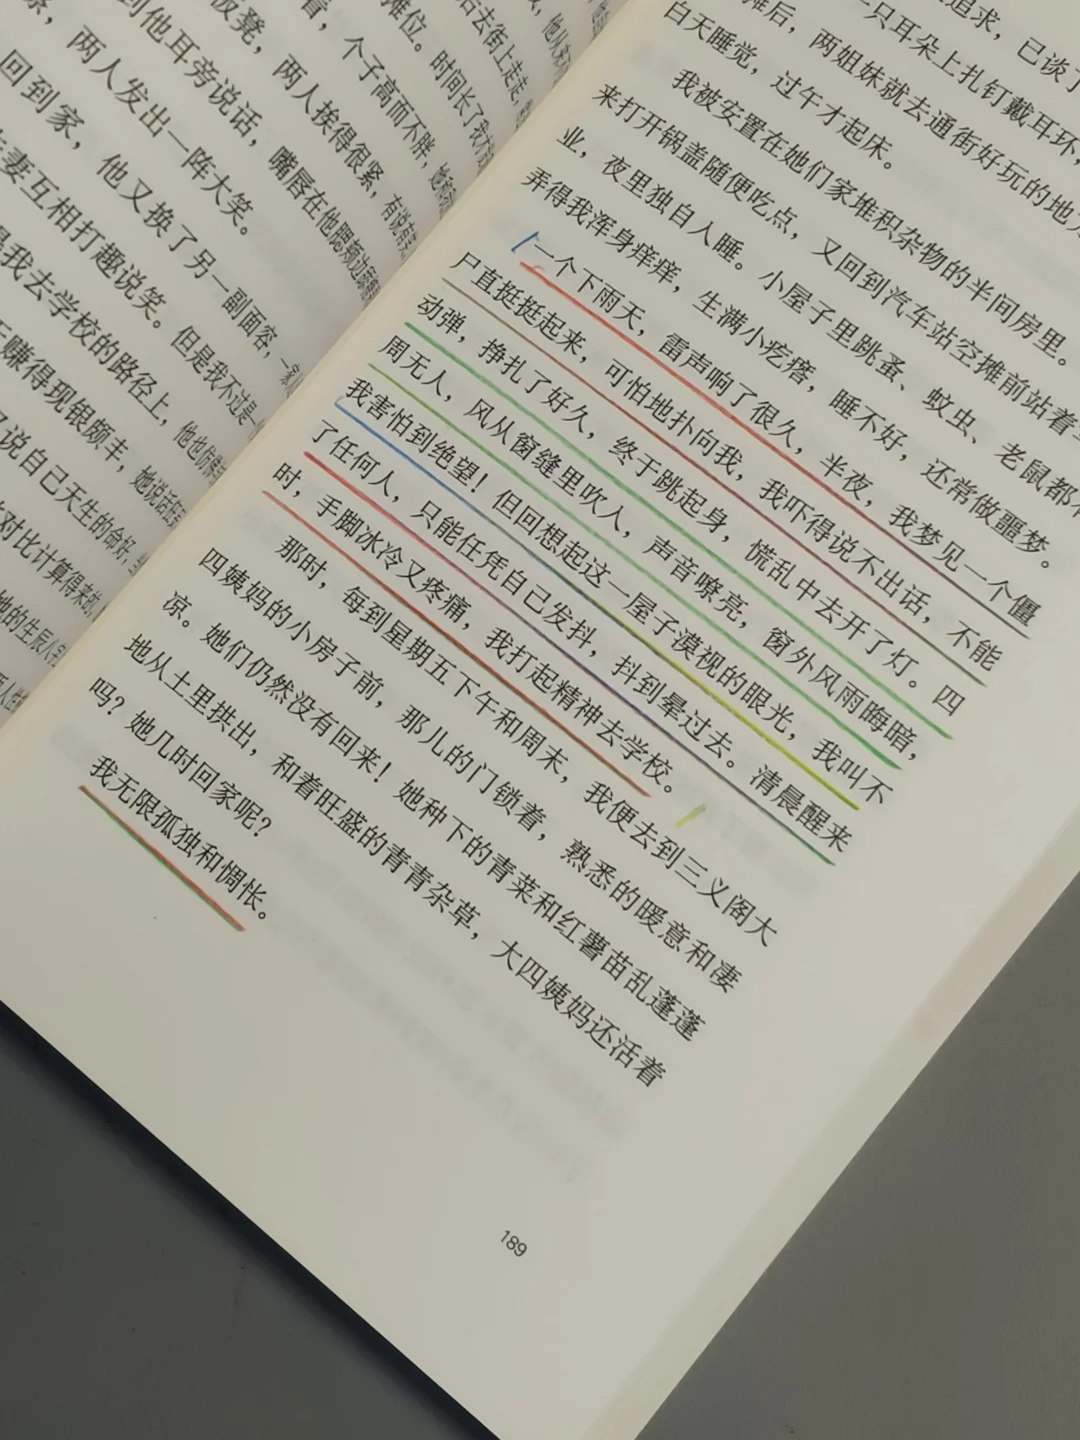 条，两人发出一阵大笑。
回到家，他又换了另一副面容，一
夫妻互相打趣说笑。但是我不过是
是我去学校的路径上，他也仿
赚得现银颇丰，她说话
说自己天生的命好，
对比计算得来
她的生辰八字
到他耳旁说话，嘴唇在他腮颊边
板凳，两人挨得很紧，有说有
个子高而不胖，她和
摊位。时间长了我
后去街上走走，
他从来不
追求，已谈了
一只耳朵上扎钉戴耳环，
摊后，两姐妹就去通街好玩的地方
白天睡觉，过午才起床。
我被安置在她们家堆积杂物的半间房里。
来打开锅盖随便吃点，又回到汽车站空摊前站着
业，夜里独自人睡。小屋子里跳蚤、蚊虫、老鼠都
弄得我浑身痒痒，生满小疙瘩，睡不好，还常做噩梦。
一个下雨天，雷声响了很久，半夜，我梦见一个僵
尸直挺挺起来，可怕地扑向我，我吓得说不出话，不能
动弹，挣扎了好久，终于跳起身，慌乱中去开了灯。四
周无人，风从窗缝里吹人，声音嘹亮，窗外风雨晦暗，
我害怕到绝望！但回想起这一屋子漠视的眼光，我叫不
了任何人，只能任凭自己发抖，抖到晕过去。清晨醒来
时，手脚冰冷又疼痛，我打起精神去学校。
那时，每到星期五下午和周末，我便去到三义阁大
四姨妈的小房子前，那儿的门锁着，熟悉的暖意和凄
凉。她们仍然没有回来！她种下的青菜和红薯苗乱蓬蓬
地从土里拱出，和着旺盛的青青杂草，大四姨妈还活着
吗？她几时回家呢？
我无限孤独和惆怅。
189